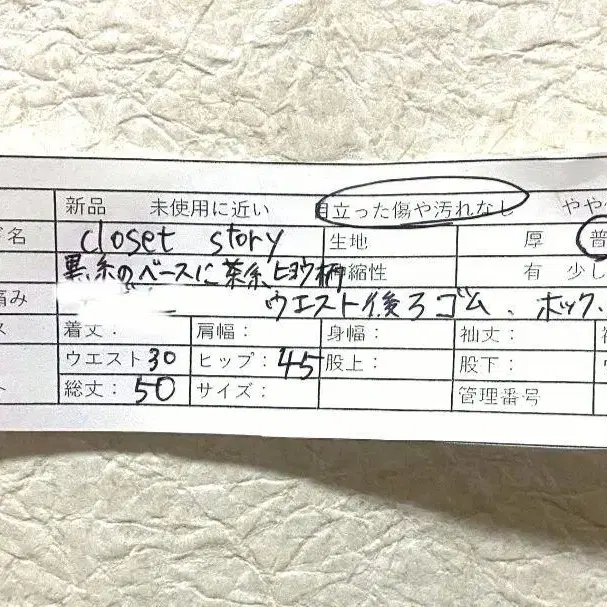 新品 未使用に近い 目立った傷や汚れなし やや
ド名 closet story 生地 厚 普
黒系のベースに茶系ヒョウ柄 伸縮性 有 少し
痛み ウエスト後ろゴム、ホック、
ス 着丈： 肩幅： 身幅： 袖丈：
ウエスト30 ヒップ：45 股上： 股下：
ト 総丈：50 サイズ： 管理番号